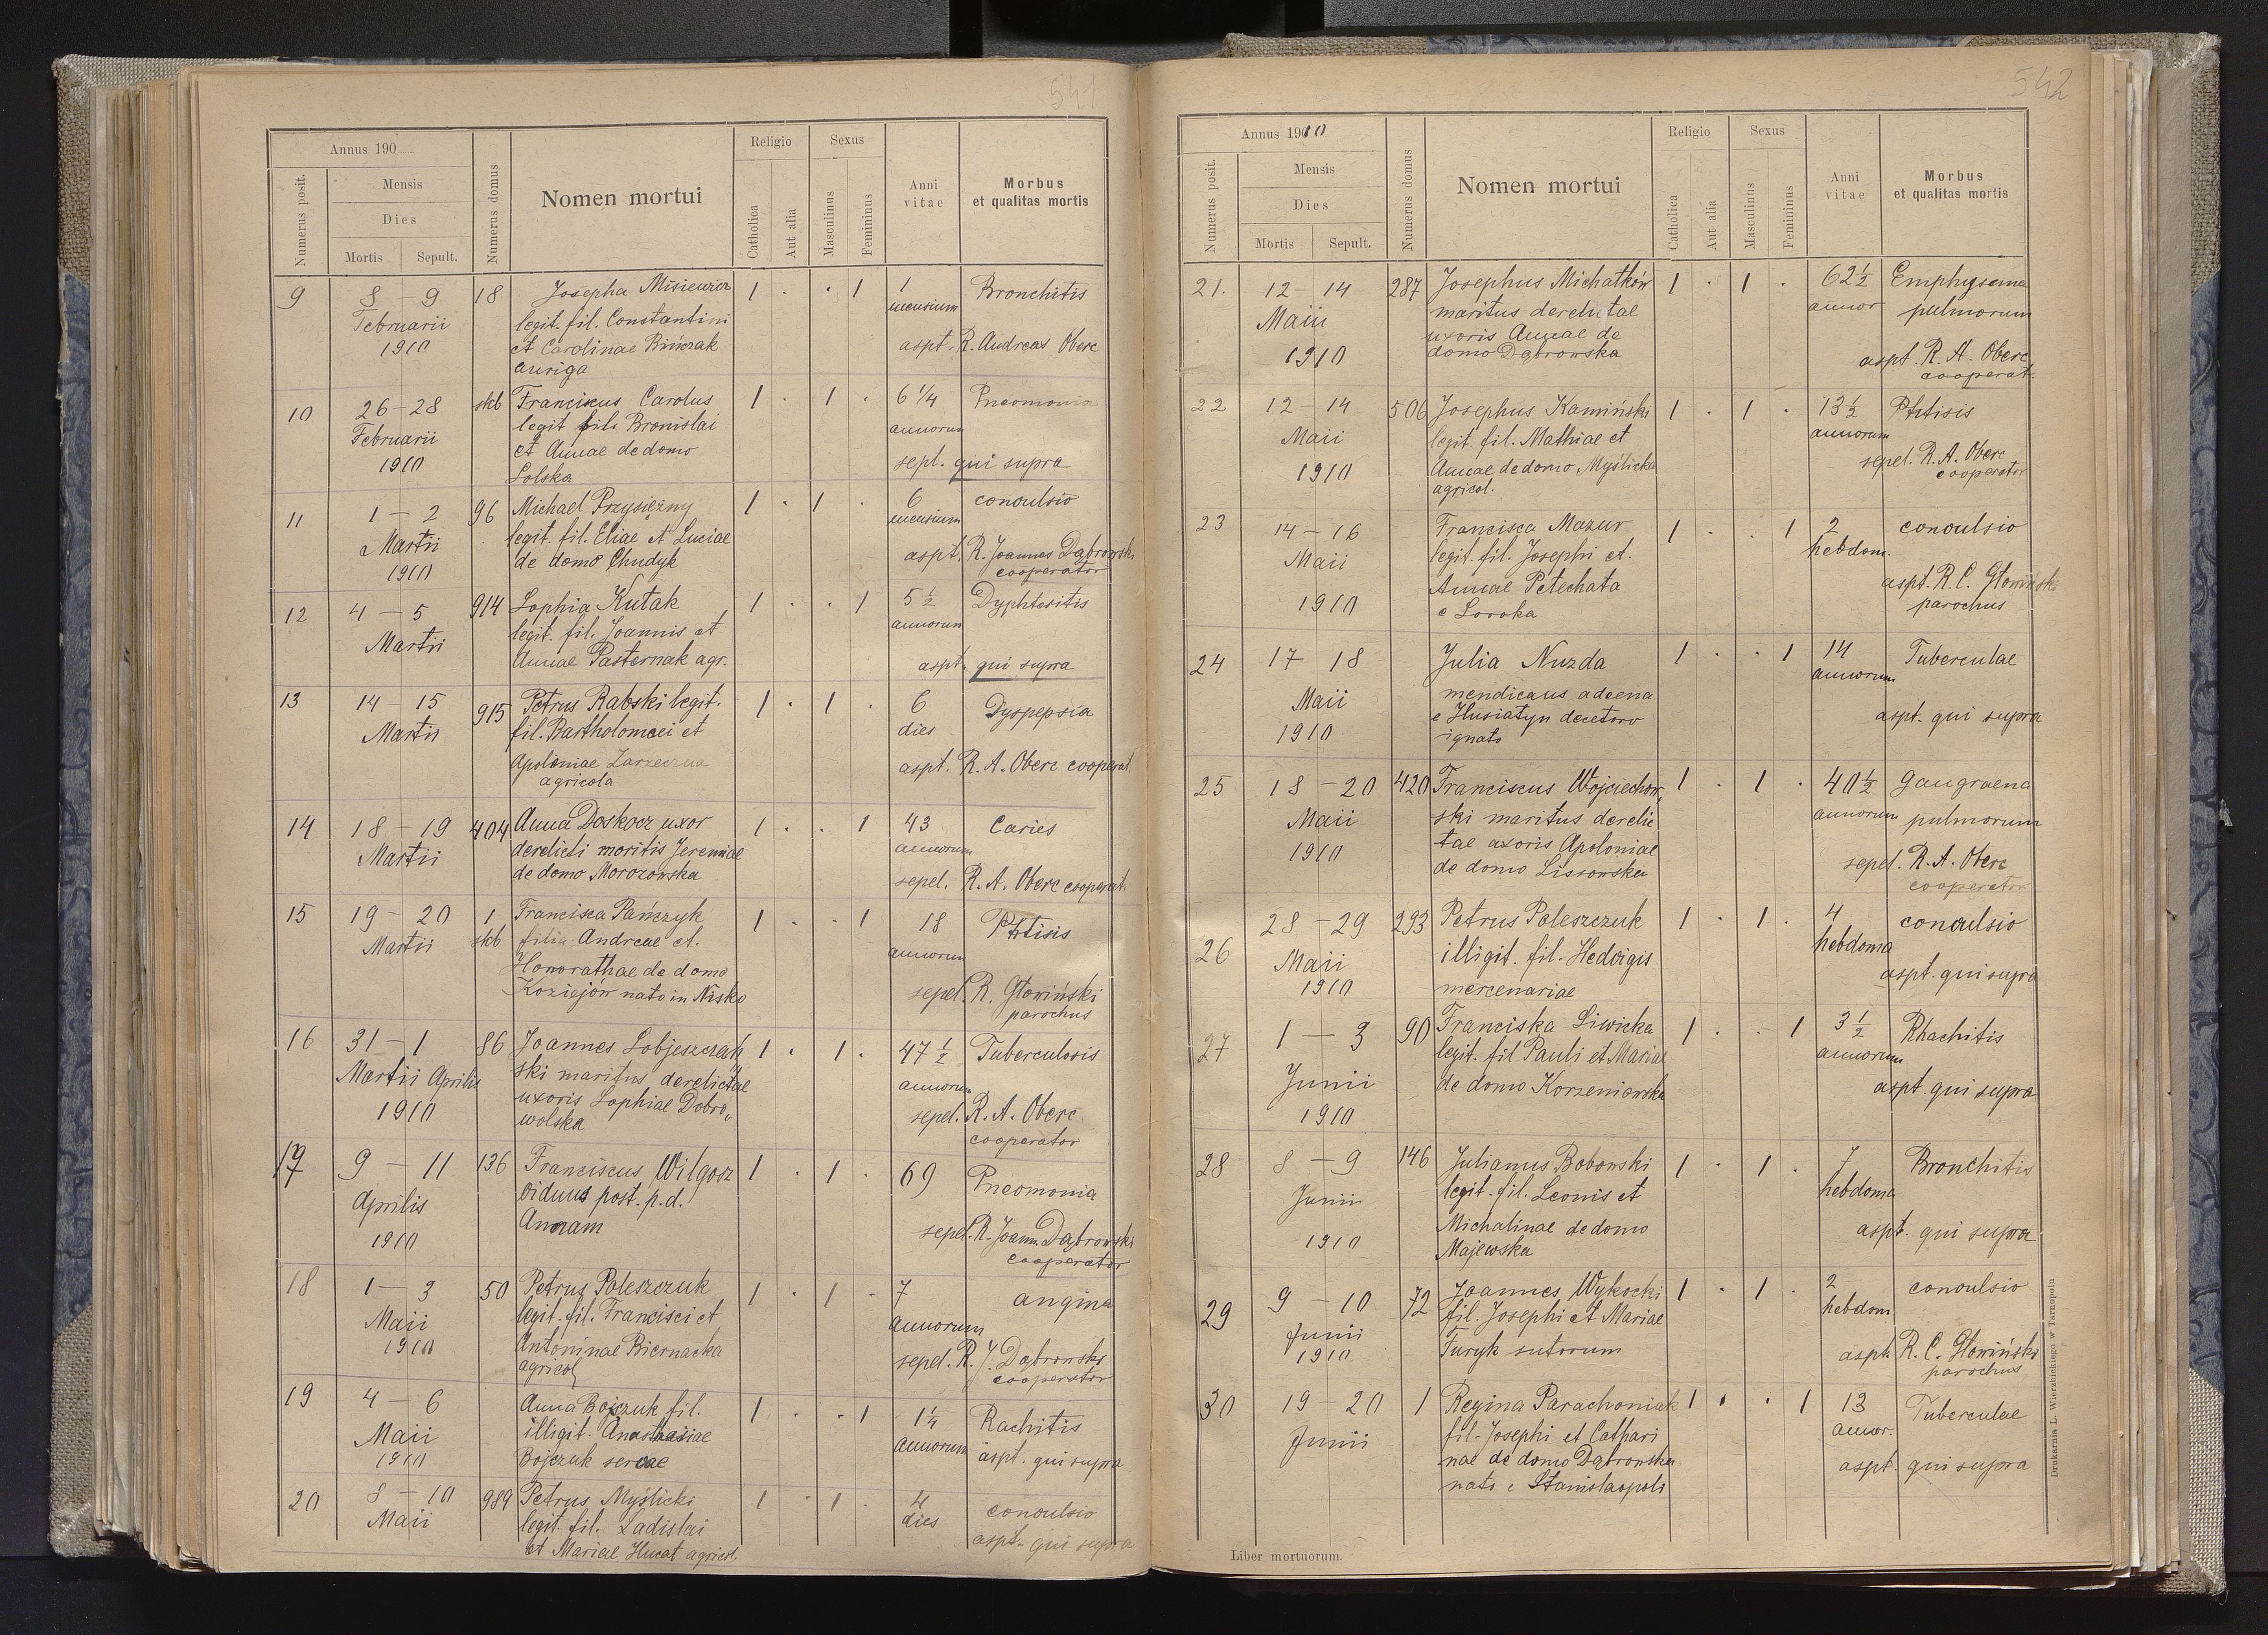 541
Annus 190
Numerus posit.
Mensis
Dies
Mortis
Sepult.
Numerus domus
Nomen mortui
Religio
Catholica
Aut alia
Sexus
Masculinus
Femininus
Anni
vitae
Morbus
et qualitas mortis
9
8 – 9
Februarii
1910
18
Josepha Misiewicz
legit. fil. Constantini
et Carolinae Bińczak
auriga
1 . . 1
1
mensium
Bronchitis
aspt. R. Andreas Oberc
10
26 – 28
Februarii
1910
skb
Franciscus Carolus
legit fil. Bronislai
et Annae de domo
Solska
1 . 1 .
6 1/4
annorum
Pneomonia
sepl. qui supra
11
1 – 2
Martii
1910
96
Michael Przysiężny
legit. fil. Eliae et Luciae
de domo Chudyk
1 . 1 .
6
mensium
convulsio
aspt. R. Joannes Dąbrowski
cooperator
12
4 – 5
Martii
914
Sophia Kutak
legit. fil. Joannis et
Annae Pasternak agr.
1 . . 1
5 1/2
annorum
Dyphteritis
aspt. qui supra
13
14 – 15
Martii
915
Petrus Rabski legit.
fil. Bartholomaei et
Apoloniae Zarzeczna
agricola
1 . 1 .
6
dies
Dyspepsia
aspt. R. A. Oberc cooperat.
14
18 – 19
Martii
404
Anna Doskocz uxor
derelicti moritis Jeremiae
de domo Morozowska
1 . . 1
43
annorum
Caries
sepel. R. A. Oberc cooperat.
15
19 – 20
Martii
1
skb
Francisca Pańczyk
filia Andreae et.
Honorathae de domo
Koziejów nato in Nisko
1 . . 1
18
annorum
Phtisis
sepel. R. Głowiński
parochus
16
31 – 1
Martii Aprilis
1910
86
Joannes Sobjeszczań
ski maritus derelictae
uxoris Sophiae Dobro„
wolska
1 . 1 .
47 1/2
annorum
Tuberculosis
sepel. R. A. Oberc
cooperator
17
9 – 11
Aprilis
1910
136
Franciscus Wilgocz
viduus post. p. d.
Annam
1 . 1 .
69
Pneomonia
sepel. R. Joann. Dąbrowski
cooperator
18
1 – 3
Maii
1910
50
Petrus Poleszczuk
legit. fil. Francisci et
Antoninae Biernacka
agricol
1 . 1 .
7
annorum
angina
sepel. R. J. Dąbrowski
cooperator
19
4 – 6
Maii
1910
Anna Bojczuk fil.
illigit. Anastasiae
Bojczuk servae
1 . . 1
1 1/4
annorum
Rachitis
aspt. qui supra
20
8 – 10
Maii
989
Petrus Myślicki
legit. fil. Ladislai
et Mariae Hucat agricol.
1 . 1 .
4
dies
convulsio
aspt. qui supra
542
Annus 1910
Numerus posit.
Mensis
Dies
Mortis
Sepult.
Numerus domus
Nomen mortui
Religio
Catholica
Aut alia
Sexus
Masculinus
Femininus
Anni
vitae
Morbus
et qualitas mortis
21.
12 – 14
Maii
1910
287
Josephus Michałków
maritus derelictae
uxoris Annae de
domo Dąbrowska
1 . 1 .
62 1/2
annor
Emphysema
pulmorum
aspt. R. A. Oberc
cooperat.
22
12 – 14
Maii
1910
506
Josephus Kamiński
legit. fil. Mathiae et
Annae de domo Myślicka
agricol.
1 . 1 .
13 1/2
annorum
Phtisis
sepel. R. A. Oberc
cooperator
23
14 – 16
Maii
1910
Francisca Mazur
legit. fil. Josephi et.
Annae Petechata
e Soroka
1 . . 1
2
hebdom.
convulsio
aspt. R. C. Głowiński
parochus
24
17 – 18
Maii
1910
Julia Nuzda
mendicans adeena
e Husiatyn decetoro
ignato
1 . . 1
14
annorum
Tuberculae
aspt. qui supra
25
18 – 20
Maii
1910
420
Franciscus Wojciechow„
ski maritus derelic
tae uxoris Apoloniae
de domo Lissowska
1 . 1 .
40 1/2
annorum
gangraena
pulmorum
sepel. R. A. Oberc
cooperator
26
28 – 29
Maii
1910
293
Petrus Poleszczuk
illigit. fil. Hedvigis
mercenariae
1 . 1 .
4
hebdoma
convulsio
aspt. qui supra
27
1 – 3
Junii
1910
90
Franciska Liwicka
legit. fil Pauli et Mariae
de domo Korzeniowska
1 . . 1
3 1/2
annorum
Rhachitis
aspt qui supra
28
8 – 9
Junii
1910
146
Julianus Bobowski
legit. fil. Leonis et
Michalinae de domo
Majewska
1 . 1 .
7
hebdoma
Bronchitis
aspt. qui supra
29
9 – 10
Junii
1910
72
Joannes Wykocki
fil. Josephi et Mariae
Furyk sutorum
1 . 1 .
2
hebdom
convulsio
aspt. R. C. Głowiński
parochus
30
19 – 20
Junii
1
Regina Parachoniak
fil. Josephi et Cathari
nae de domo Dąbrowska
nato e Stanislaopoli
1 . . 1
13
annor.
Tuberculae
aspt. qui supra
Liber mortuorum.
Drukarnia L. Wierzbickiego w Tarnopolu